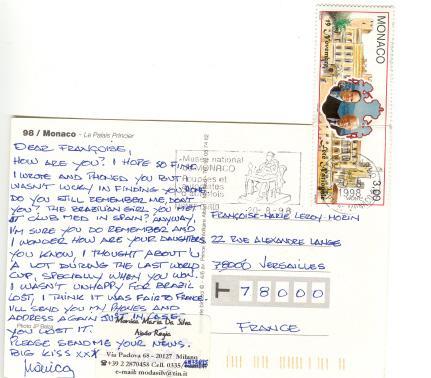 98 / Monaco - Le Palais Princier
DEAR FRANÇOISE,
HOW ARE YOU? I HOPE SO FINE.
I WROTE AND PHONED YOU BUT I
WASN'T LUCKY IN FINDING YOU HOME.
DO YOU STILL REMEMBER ME, DON'T
YOU? THE BRAZILIAN GIRL YOU MET
AT CLUB MED IN SPAIN? ANYWAY,
I'M SURE YOU DO REMEMBER AND
I WONDER HOW ARE YOUR DAUGHTERS.
YOU KNOW, I THOUGHT ABOUT U
A LOT DURING THE LAST WORLD
CUP, SPECIALLY WHEN YOU WON.
I WASN'T UNHAPPY FOR BRAZIL
LOST, I THINK IT WAS FAIR TO FRANCE.
I'LL SEND YOU MY PHONES AND
ADDRESS AGAIN JUST IN CASE
YOU LOST IT.
PLEASE SEND ME YOUR NEWS.
BIG KISS XXX
Monica
Photo JP
Monica Maria Da Silva
Via Padova 68 - 20127 Milano
☎+39 2 2870458 Cell. 0335/
e-mail: modasilv@tin.it
Musee national
MONACO
Poupées et
d'autrefois
20-8-98
MONACO
19 Novembre
1998
3,00
FRANÇOISE-MARIE LEROY-MORIN
22 RUE ALEXANDRE LANGE
78000 VERSAILLES
T 78000
FRANCE